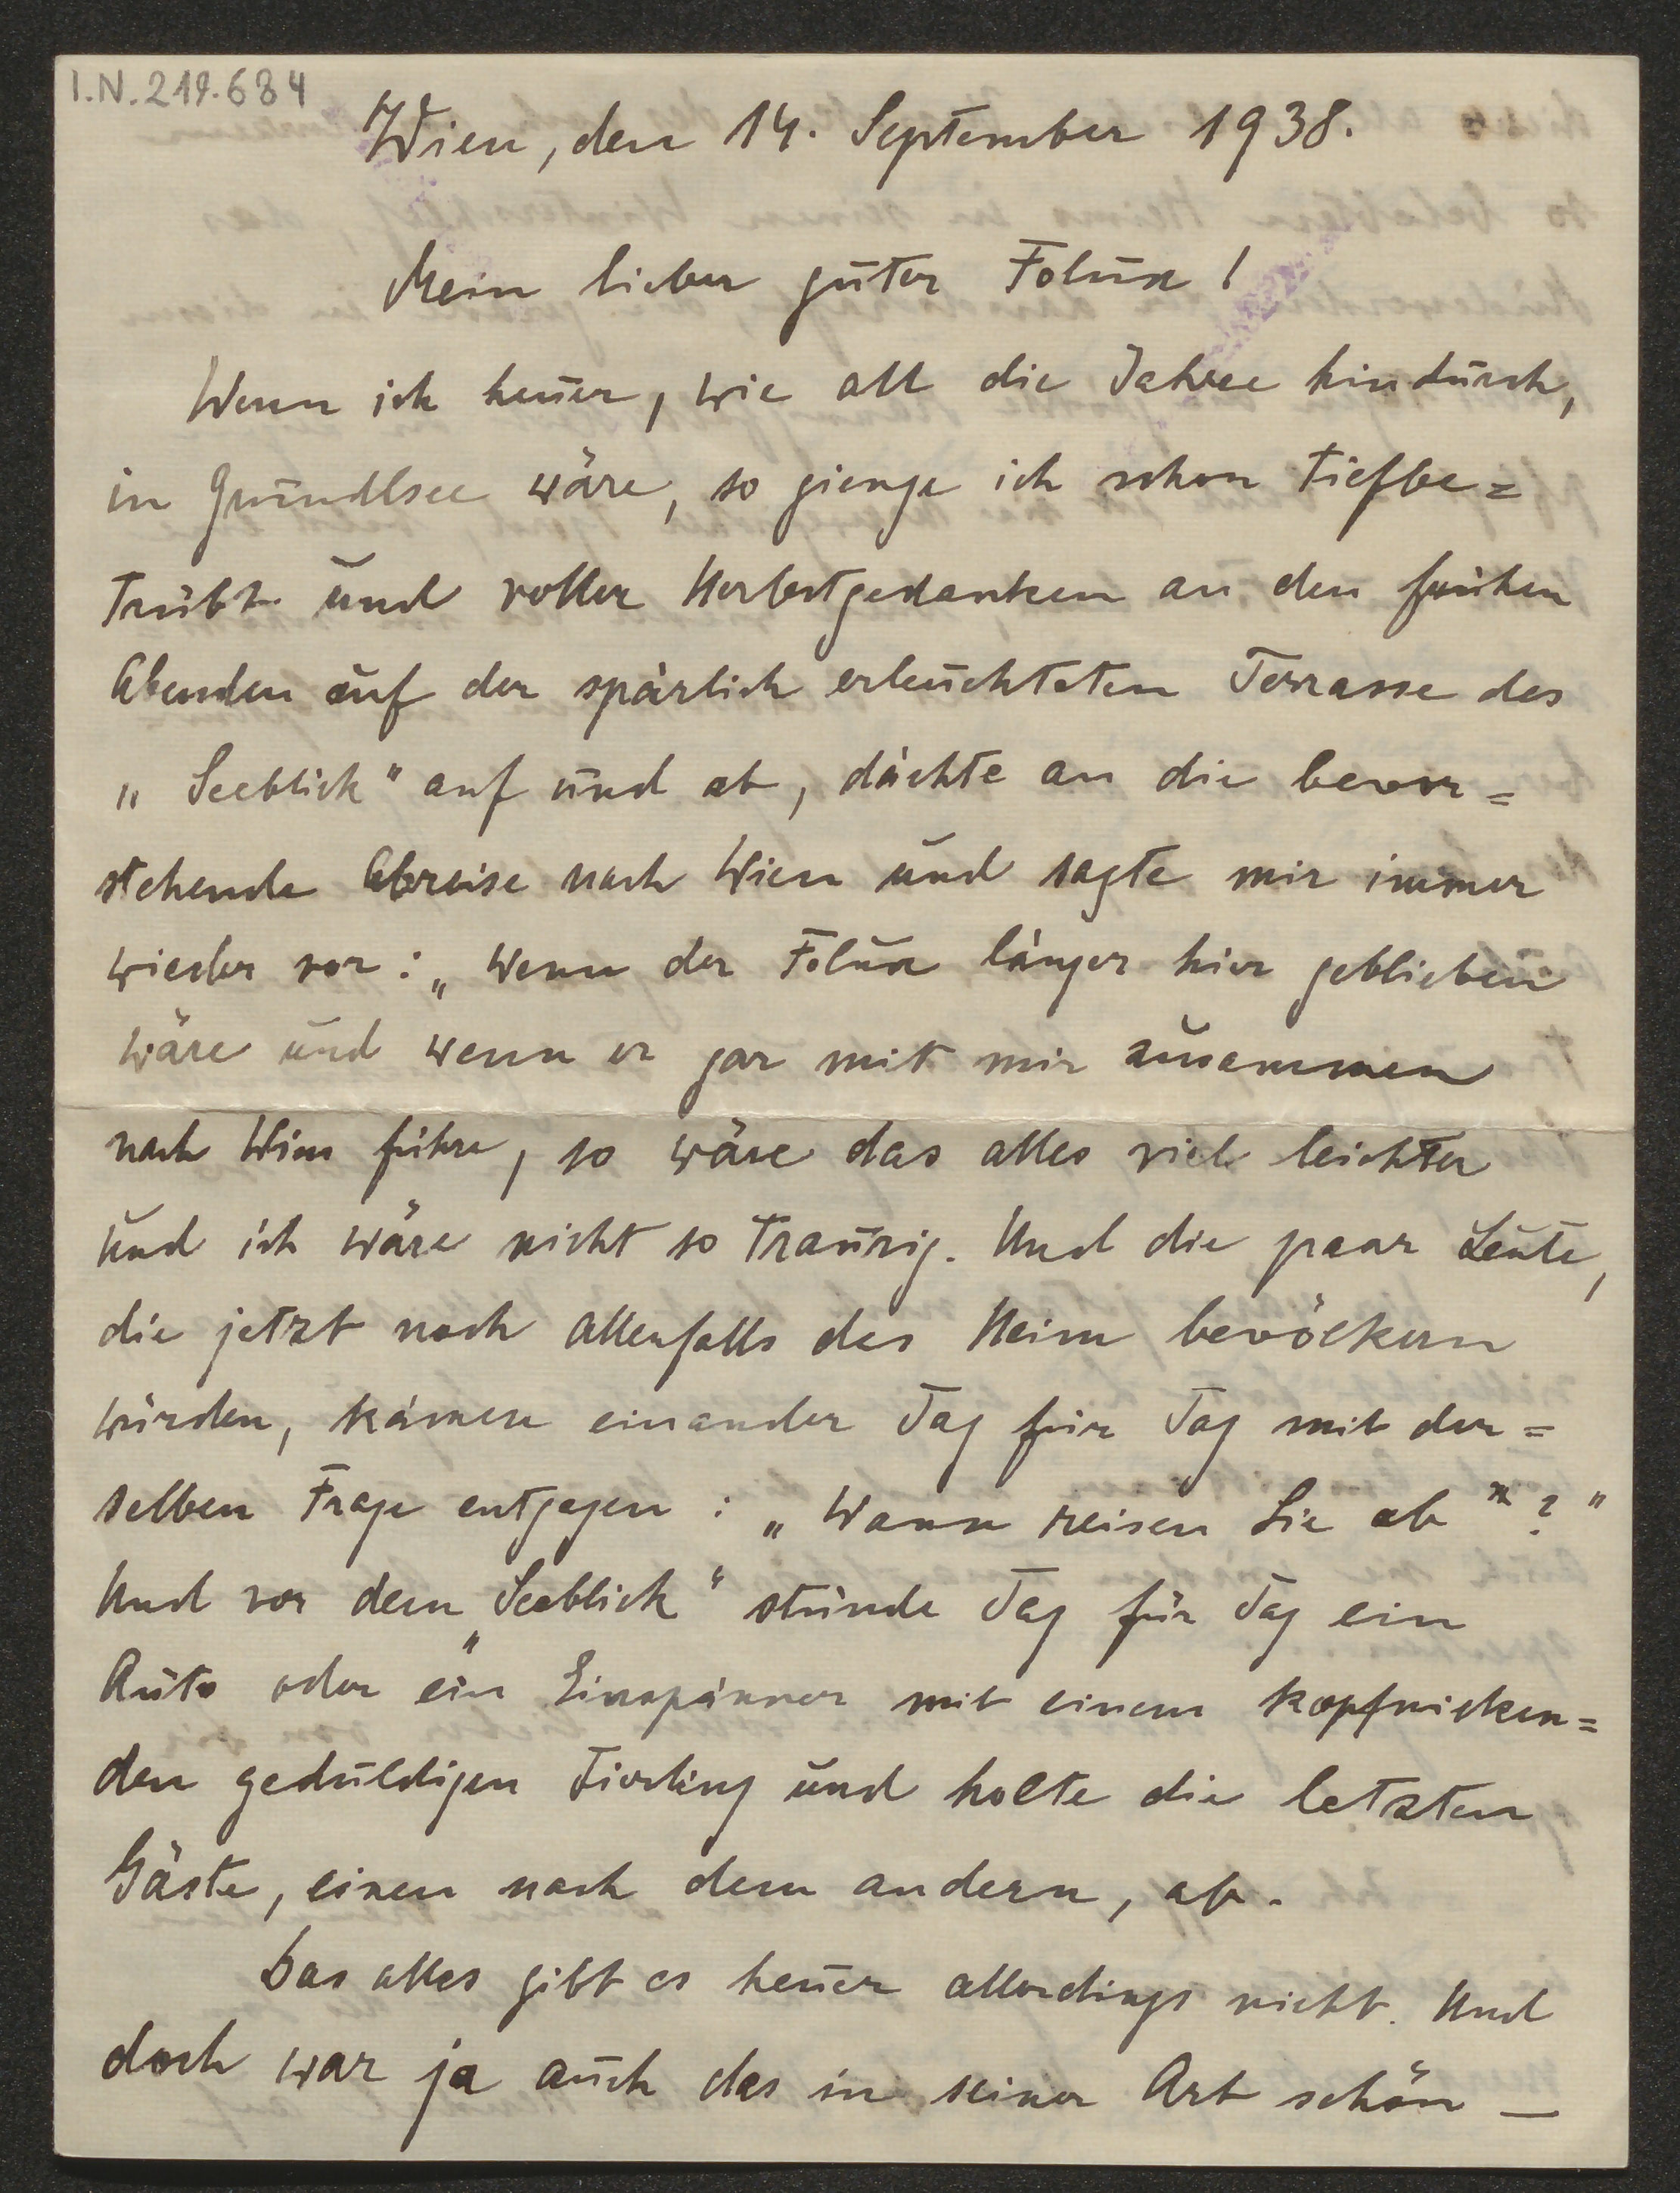 I.N. 219.684
Wien, den 14. September 1938.
Mein lieber guter Folux!
Wenn ich heuer, wie all die Jahre hindurch,
in Grundlsee wäre, so gienge ich schon tiefbe=
trübt und voller Herbstgedanken an den frühen
Abenden auf der spärlich erleuchteten Terrasse des
„Seeblick" auf und ab, dächte an die bevor=
stehende Abreise nach Wien und sagte mir immer
wieder vor: „Wenn der Folux länger hier geblieben
wäre und wenn er gar mit mir zusammen
nach Wien führe, so wäre das alles viel leichter
und ich wäre nicht so traurig. Und die paar Leute,
die jetzt noch allenfalls das Heim bevölkern
würden, kämen einander Tag für Tag mit der=
selben Frage entgegen: „Wann reisen Sie ab"?"
Und vor dem „Seeblick" stünde Tag für Tag ein
Auto oder ein Einspänner mit einem kopfnicken=
den geduldigen Fiorling und holte die letzten
Gäste, einen nach dem andern, ab.
Das alles gibt es heuer allerdings nicht. Und
doch war ja auch das in seiner Art schön —